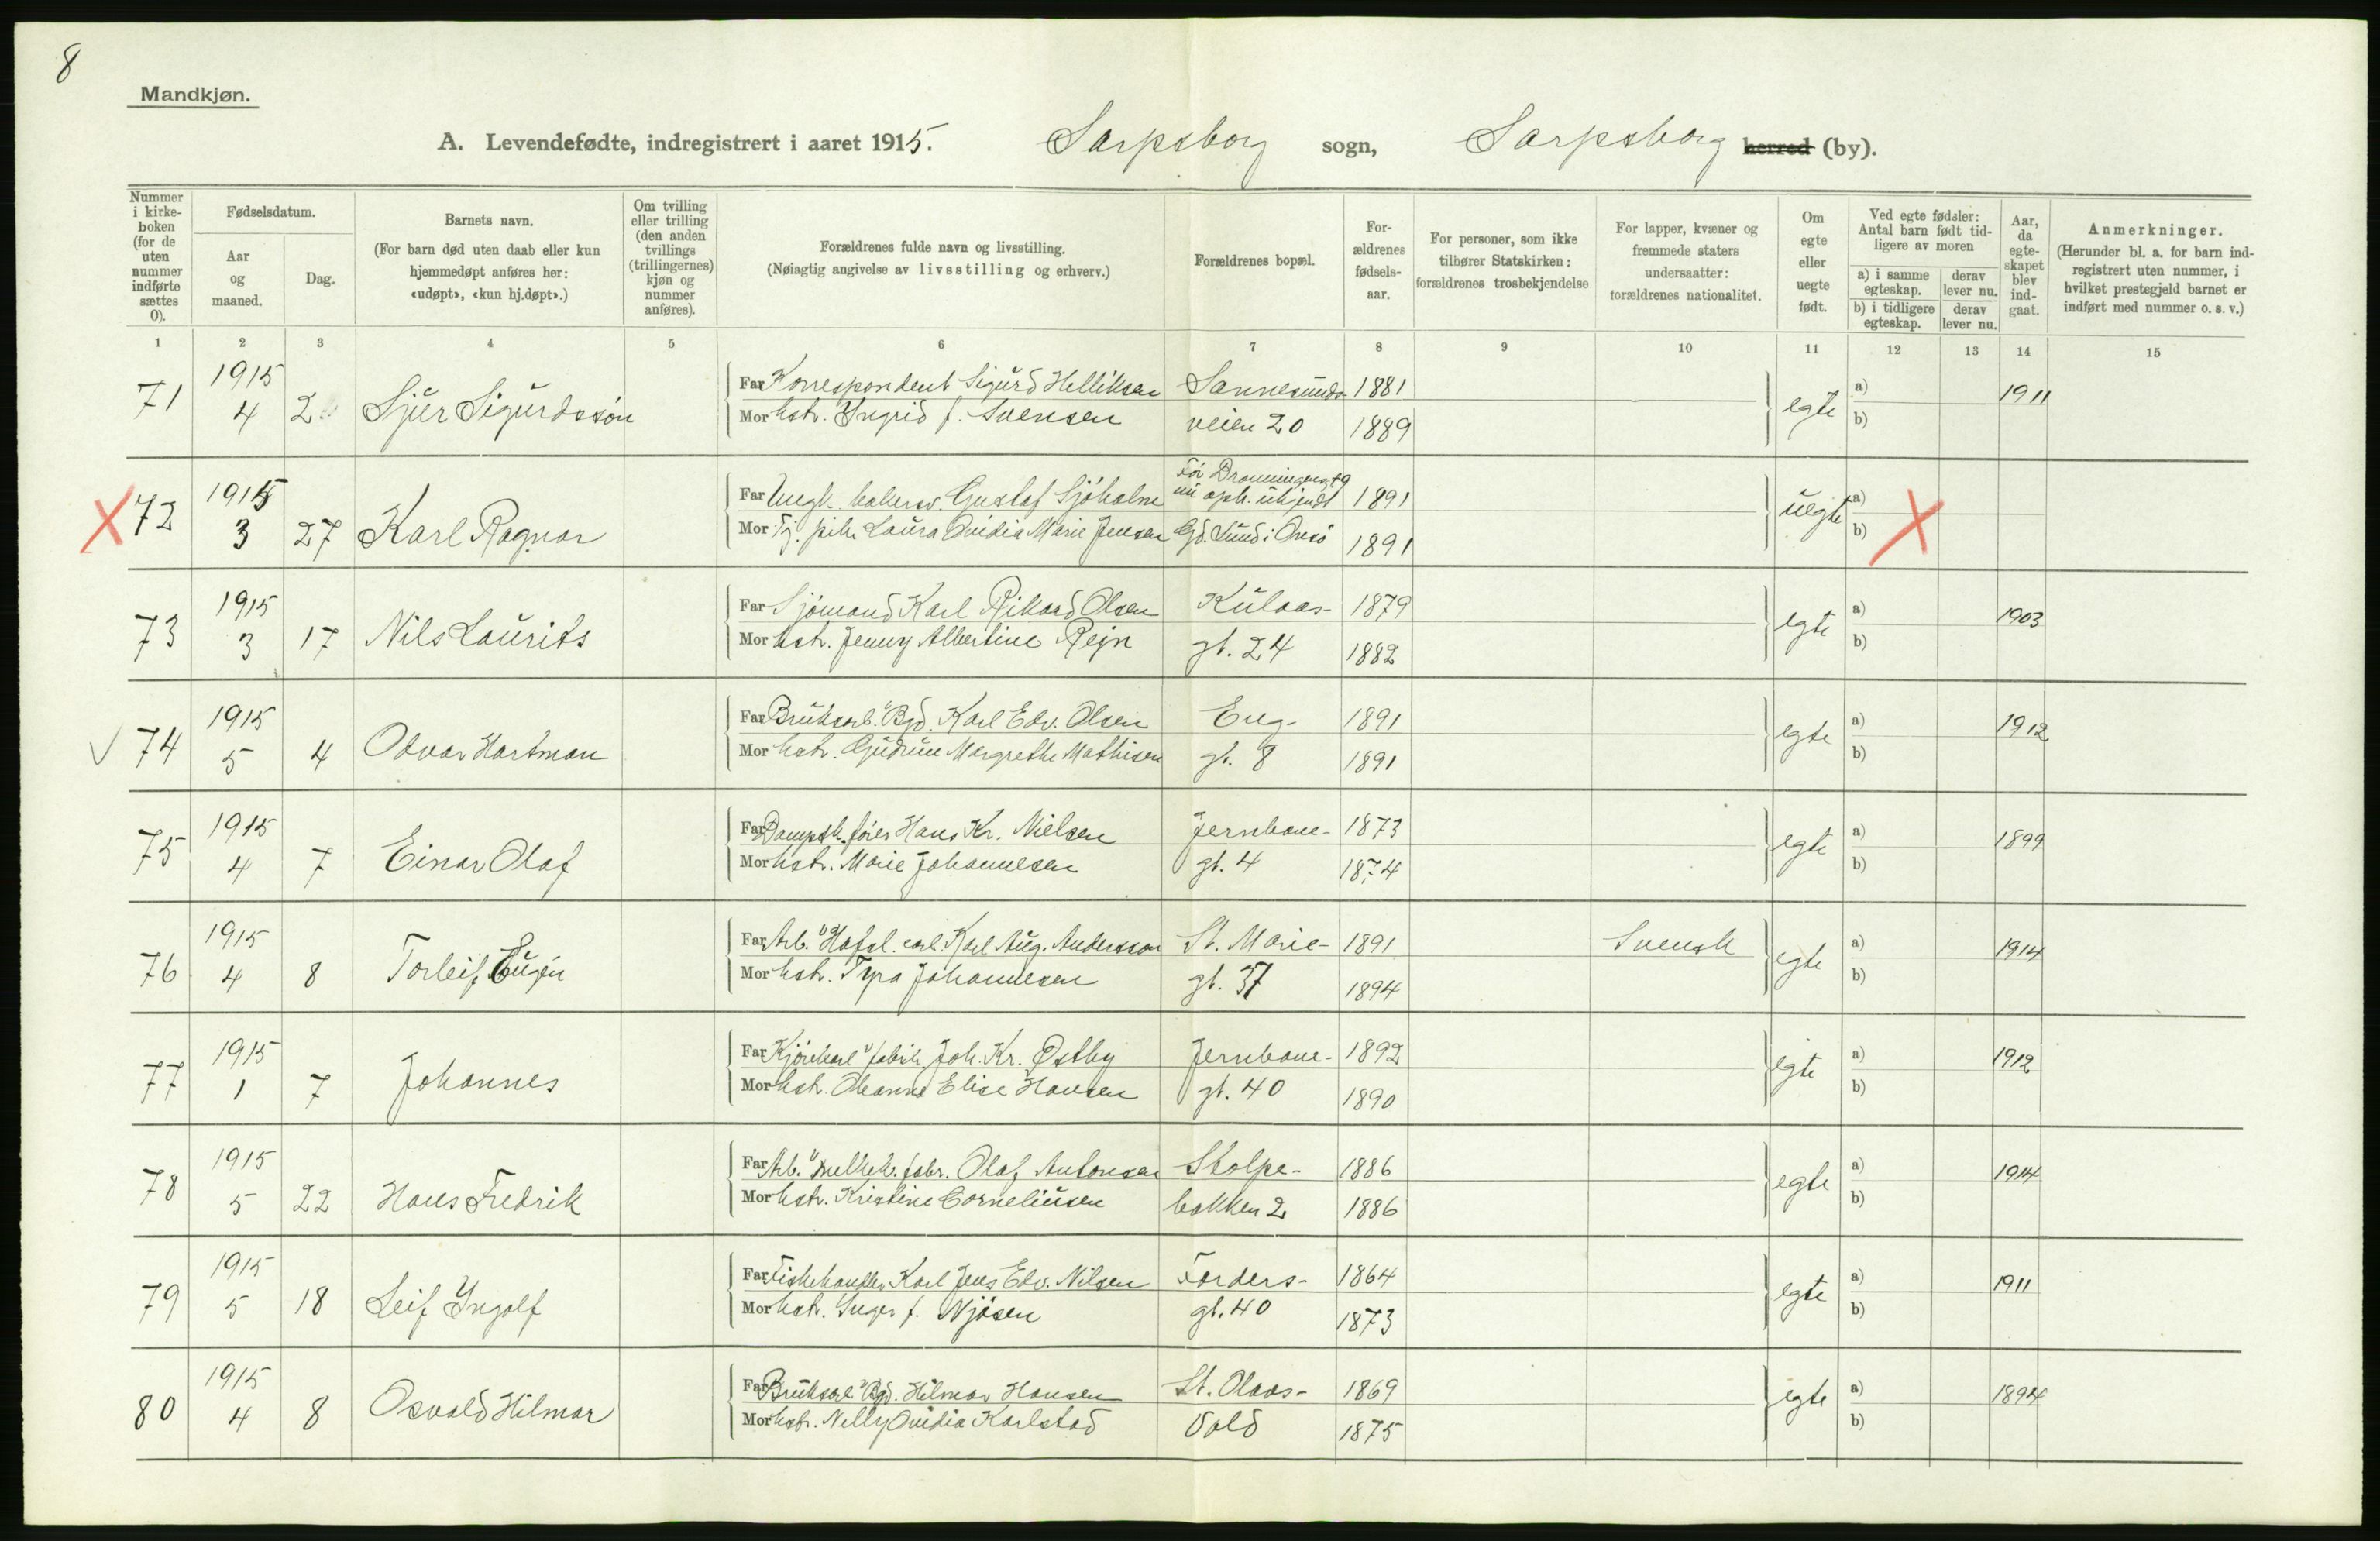 8
Mandkjøn.
A. Levendefødte, indregistrert i aaret 1915. Sarpsborg sogn, Sarpsborg herred (by).
Nummer i kirkeboken (for de uten nummer indførte sættes 0).
Fødselsdatum.
Aar og maaned.
Dag.
Barnets navn.
(For barn død uten daab eller kun hjemmedøpt anføres her: «udøpt», «kun hj.døpt».)
Om tvilling eller trilling (den anden tvillings (trillingernes) kjøn og nummer anføres).
Forældrenes fulde navn og livsstilling.
(Nøiagtig angivelse av livsstilling og erhverv.)
Forældrenes bopæl.
Forældrenes fødselsaar.
For personer, som ikke tilhører Statskirken: forældrenes trosbekjendelse
For lapper, kvæner og fremmede staters undersaatter: forældrenes nationalitet.
Om egte eller uegte født.
Ved egte fødsler: Antal barn født tidligere av moren
a) i samme egteskap.
derav lever nu.
b) i tidligere egteskap.
derav lever nu.
Aar, da egteskapet blev indgaat.
Anmerkninger.
(Herunder bl. a. for barn indregistrert uten nummer, i hvilket prestegjeld barnet er indført med nummer o. s. v.)
1 2 3 4 5 6 7 8 9 10 11 12 13 14 15
71 1915 4 2 Sjur Sigurdssøn
Far Korrespondent Sigurd Helliksen Sannesunds- 1881 egte a) 1911
Mor hstr. Yngrid f. Svensen veien 20 1889 b)
72 1915 3 27 Karl Ragnar
Far Ungk. Gustaf Sjöholm Før Dronningensgt 9 nu oph. ukjendt 1891 uegte a)
Mor Tj. pike Laura Ovidia Marie Jensen Gd. Lund i Onsö 1891 b)
73 1915 3 17 Nils Laurits
Far Sjömand Karl Rikard Olsen Kulaas- 1879 egte a) 1903
Mor hstr. Jenny Albertine Rejn gt. 24 1882 b)
74 1915 5 4 Odvar Hartman
Far Bruksarb. Bgd. Karl Edv. Olsen Eng- 1891 egte a) 1912
Mor hstr. Gudrun Margrethe Mathisen gt. 8 1891 b)
75 1915 4 7 Einar Olaf
Far Dampsk.fører Hans Kr. Nielsen Jernbane- 1873 egte a) 1899
Mor hstr. Marie Johannesen gt. 4 1874 b)
76 1915 4 8 Torleif Eugén
Far Arb. Hafsl. Karl Aug. Andersson St. Marie- 1891 Svensk egte a) 1914
Mor hstr. Tyra Johannesen gt. 37 1894 b)
77 1915 1 7 Johannes
Far Kjörekarl fabrik Joh. Kr. Østby Jernbane- 1892 egte a) 1912
Mor hstr. Elise Hansen gt. 40 1890 b)
78 1915 5 22 Hans Fredrik
Far Arb. melkek. fabr. Olaf Antonsen Stolpe- 1886 egte a) 1914
Mor hstr. Kristine Corneliusen bakken 2 1886 b)
79 1915 5 18 Leif Yngolf
Far Fiskehandler Karl Jens Edv. Nilsen Forders- 1864 egte a) 1911
Mor hstr. Inger f. Njösen gt. 40 1873 b)
80 1915 4 8 Osvald Hilmar
Far Bruksarb. Bgd. Hilmar Hansen St. Olavs- 1869 egte a) 1894
Mor hstr. Nelly Ovidia Karlstad Vold 1875 b)